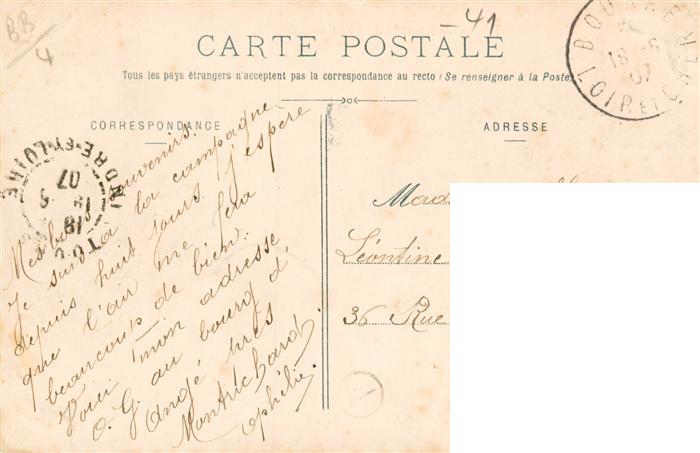 BB
4
- 41
CARTE POSTALE
Tous les pays étrangers n'acceptent pas la correspondance au recto (Se renseigner à la Poste)
CORRESPONDANCE
ADRESSE
Mes bons souvenirs.
Je suis à la campagne
depuis huit jours j'espère
que l'air me fera
beaucoup de bien.
Voici mon adresse
O. G. au bourg d'
Angé près
Montrichard
Ophélie.
Mad
Léontine
36 Rue
LOIR ET CHER
18
07
INDRE-ET-LOIRE
18
07